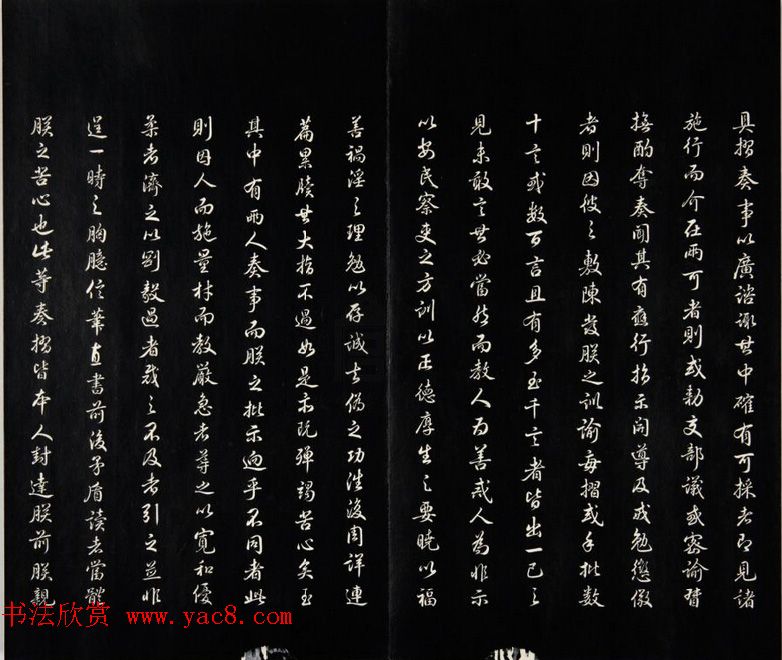 具摺奏事以廣諮諏其中確有可採者即見諸
施行而介在兩可者則或勅交部議或密諭督
撫酌奪奏聞其有應行指示開導及戒勉懲儆
者則因彼之敷陳發朕之訓諭每摺或手批數
十言或數百言且有多至千言者皆出一己之
見未敢言其必當然而教人為善戒人為非示
以安民察吏之方訓以正德厚生之要曉以福
善禍淫之理勉以存誠去偽之功往復周詳連
篇累牘其大指不過如是亦既殫竭苦心矣至
其中有兩人奏事而朕之批示迥乎不同者此
則因人而施量材而教嚴急者導之以寬和優
柔者濟之以剛毅過者裁之不及者引之並非
逞一時之胸臆信筆直書前後矛盾讀者當體
朕之苦心也此等奏摺皆本人封達朕前朕親
书法欣赏 www.yac8.com